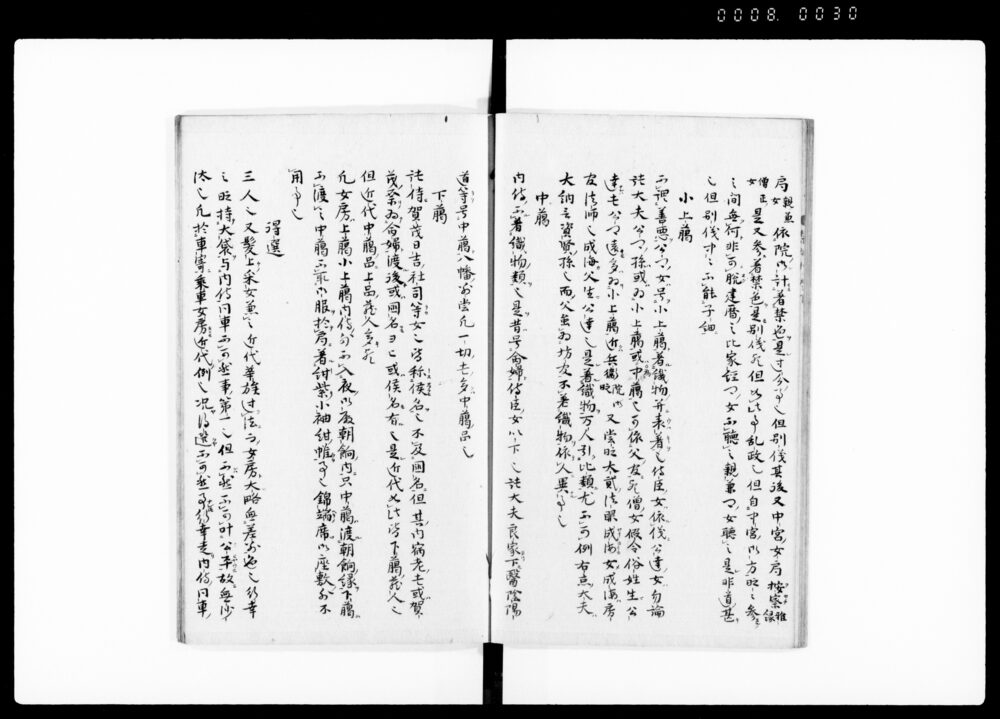 0008. 0030
局親兼女 依院御計着禁色是寸分事也但別儀其後又中宮女局按察雅縁
僧正女 是又参着禁色是別儀歟但如此事乱政也但自中宮御方時々参
之間毎何非可脱建暦之比家経卿女不聴之親兼卿女聴之是非道甚
也但別儀寸々不能子細
小上臈
不謂善悪公卿女号小上臈着織物并表着也侍臣女依儀公達女勿論
諸大夫公卿孫或為小上臈或中臈也可依父友歟僧女假令俗姓生公
達も公卿遠多為小上臈近
又当時大貳法眼成海女成海房
友法師也成海父生公達也是着織物万人引比類尤不可例右兵大夫
大納言資賢孫也而父坊友不着織物依人異事也
中臈
内侍不着織物類也是昔号命婦侍臣女以下也諸大夫良家下醫陰陽
道等号中臈八幡別当凡一切も多中臈品也
下臈
諸侍賀茂日吉社司等女也皆称候名也不及国名但其内宿老も或賀
茂祭為命婦渡後或国名
或候名有也是近代如此皆下臈蔵人也
但近代中臈品上品蔵人多歟
凡女房上臈小上臈内侍不入夜御殿朝餉内只中臈渡朝餉縁下臈
不渡之中臈不取御服於局着紺紫小袖紺帷事也錦端席御座敷不
用事也
得選
三人也又髪上采女兼也近代華族過法与女房大略無差別也行幸
之時持大袋与内侍同車不可然事第一也但不然不可叶公事故無沙
汰也凡於車寄乗車女房近代例也況得選不可然事行幸走内侍同車